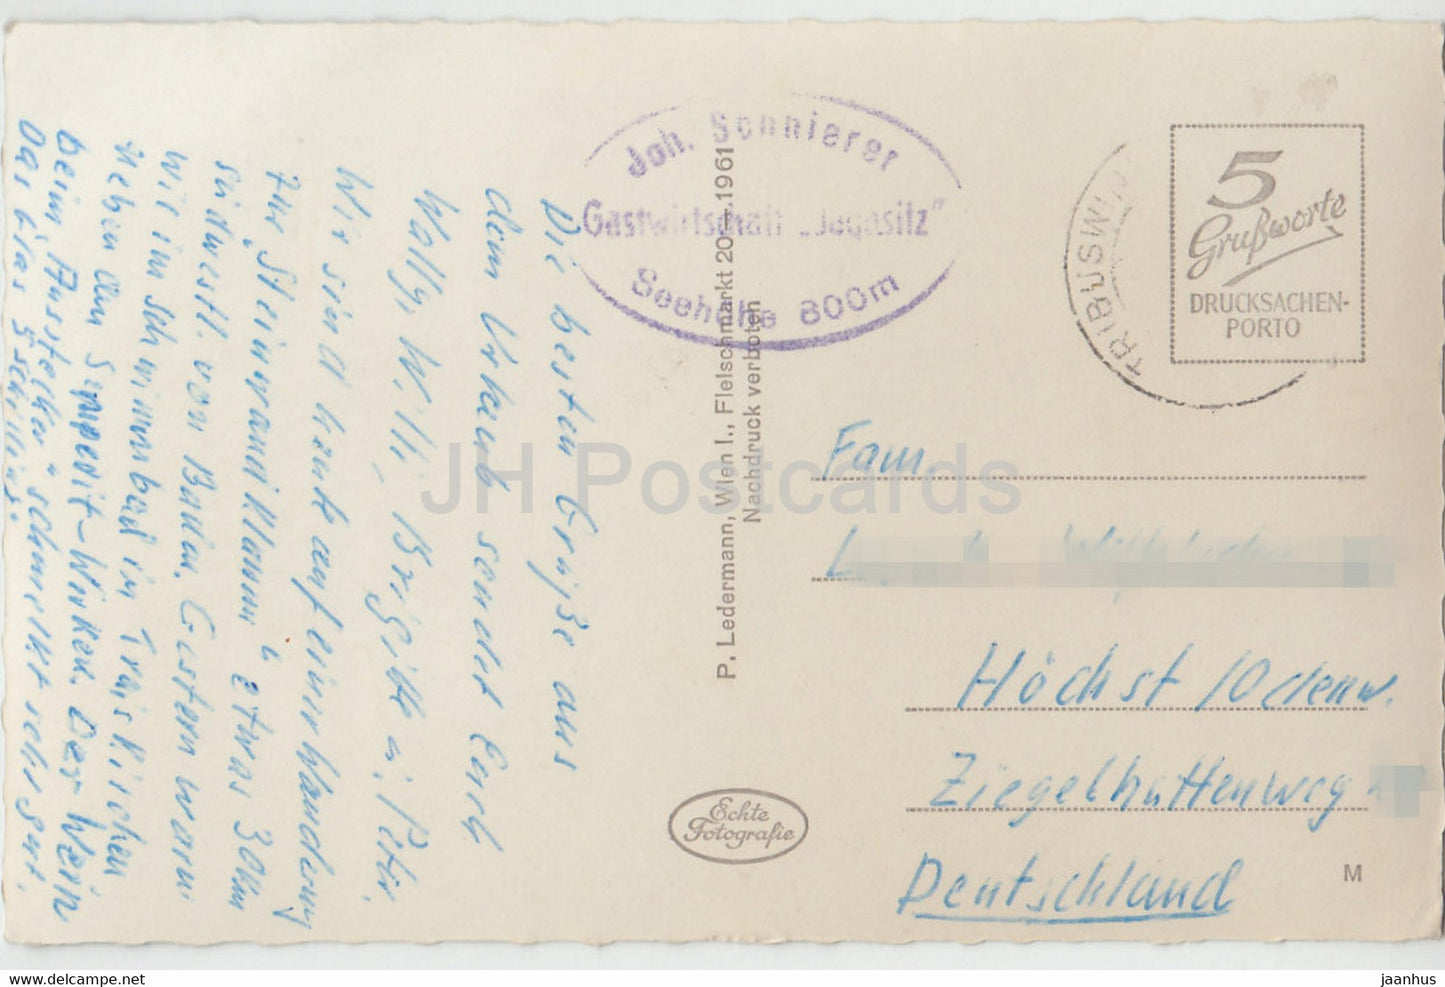 Die besten Grüße aus
dem Urlaub sendet Euch
Wally, Willi, Brigitte u. Peter.
Wir sind heute auf einer Wanderung
zur „Steinwandklamm“ etwas 30km
südwestl. von Baden. Gestern waren
wir im Schwimmbad in Traiskirchen
neben dem Semperit-Werken. Der Wein
beim „Ausstecker“ schmeckt sehr gut.
Das Glas 5 Schilling.
Joh. Schnierer
Gastwirtschaft „Jagasitz“
Seehöhe 800m
P. Ledermann, Wien I., Fleischmarkt 20 — 1961
Nachdruck verboten
Echte
Fotografie
TRIBUSW
5
Grußworte
DRUCKSACHEN-
PORTO
Fam.
Höchst /Odenw.
Ziegelhüttenweg
Deutschland
M
JH Postcards
www.delcampe.net
jaanhus